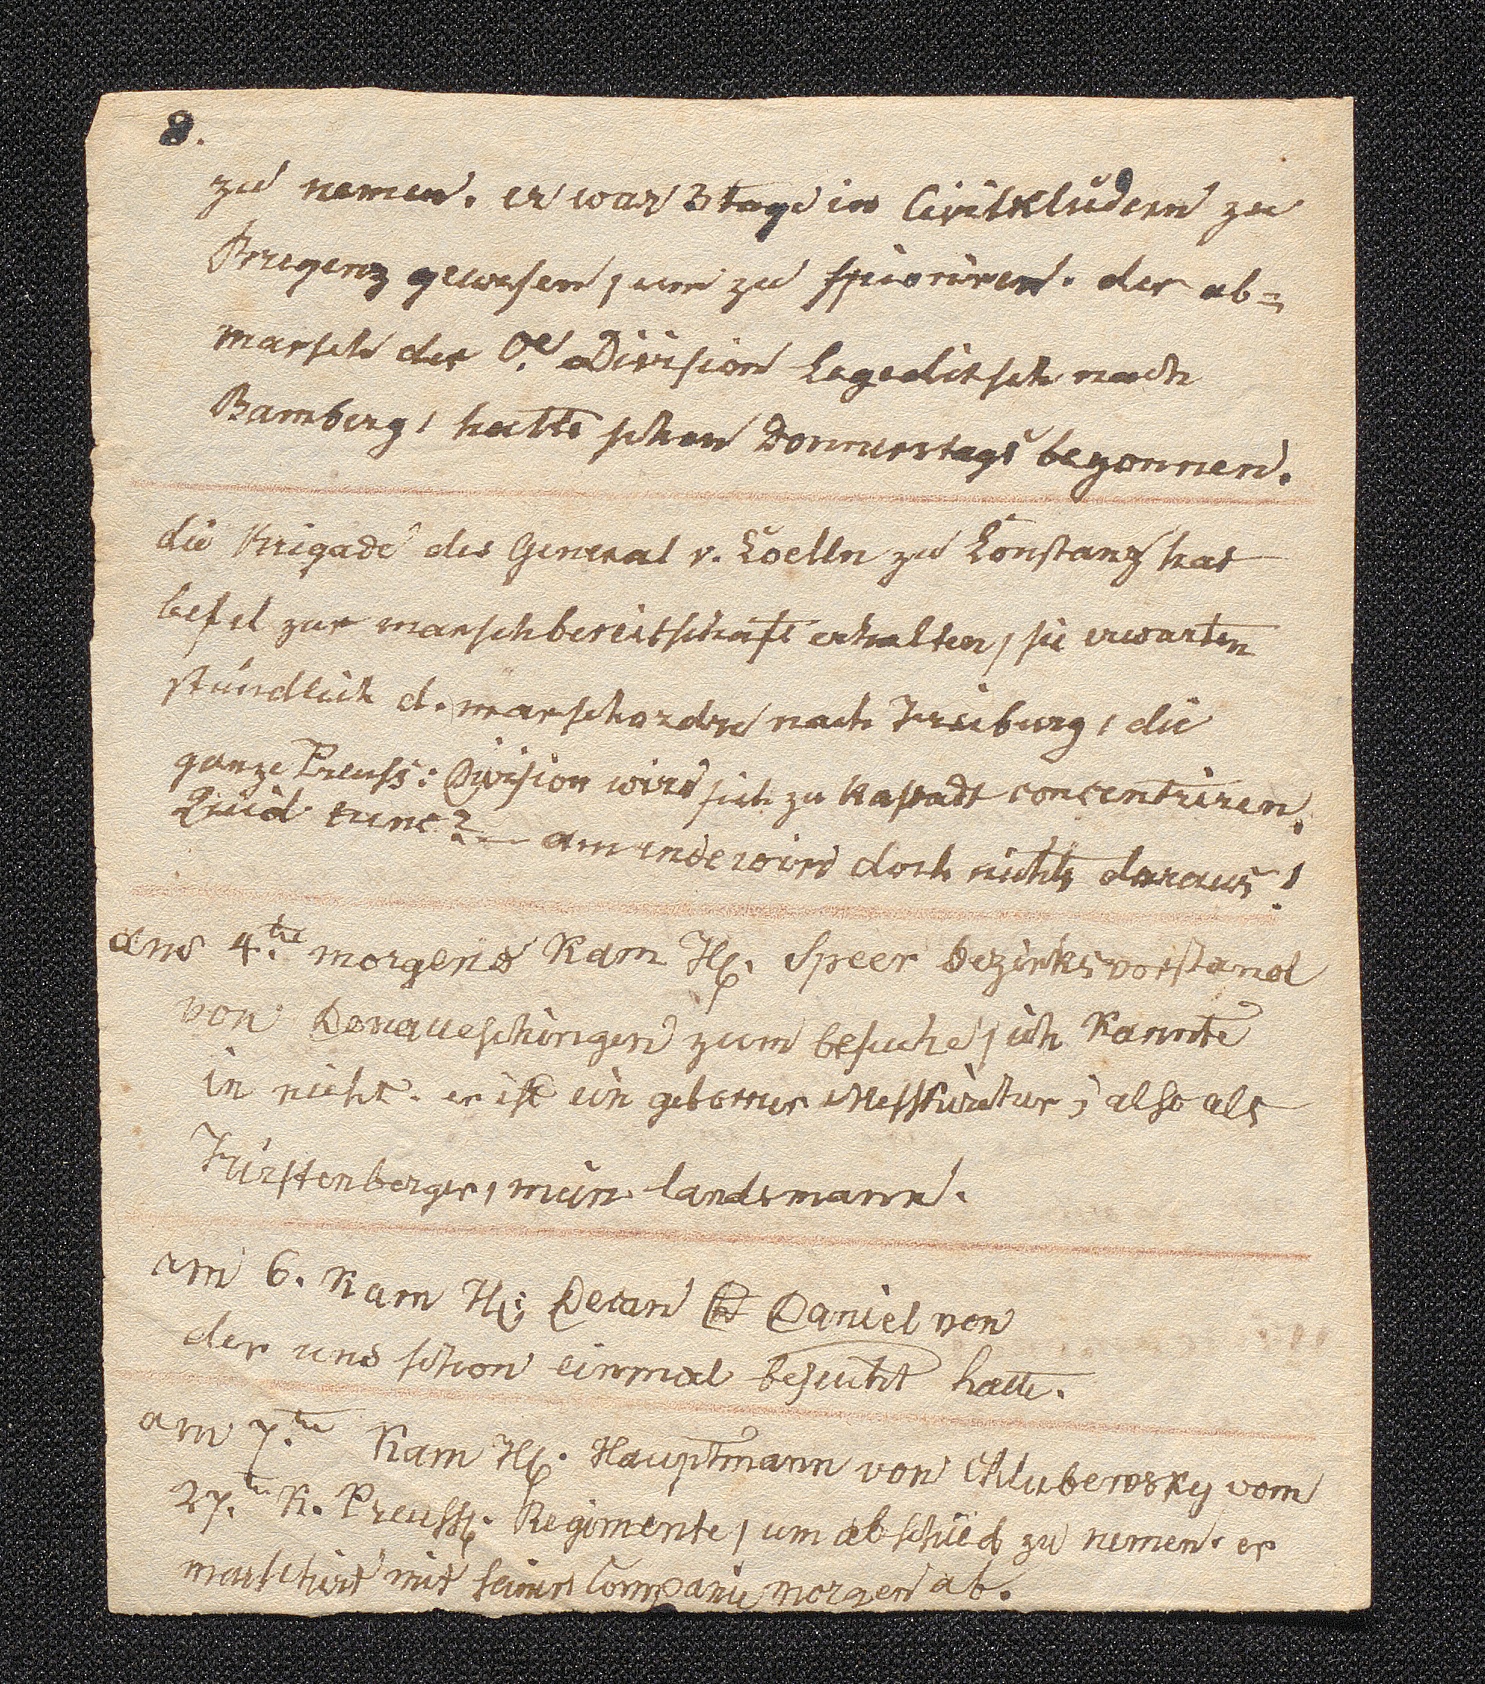 8.
zu nemen. er war 3 tage in Civilkleidern zu
Bregenz gewesen, um zu spioniren. der ab=
marsch der Oe. Division Legeditsch nach
Bamberg, hatte schon Donnerstags begonnen.
die Brigade des General v. Coelln zu Constanz hat
befel zur marschbereitschaft erhalten, sie erwarten
stündlich d. marschordre nach Freiburg, die
ganze Preuss: Division wird sich zu Rastadt concentriren.
Quid tunc? — am ende wird doch nichts daraus!
am 4.ten morgens kam H. Speer bezirksvorstand
von Donaueschingen zum besuche, ich kannte
in nicht. er ist ein geborner Messkircher; also als
Fürstenberger, mein landsmann.
am 6. kam H. Decan Daniel von
der uns schon einmal besucht hatte.
am 7.ten kam H. Hauptmann von Chlubewsky vom
27.ten K. Preuss. Regimente, um abschied zu nemen. er
marschirt mit seiner Companie morgen ab.